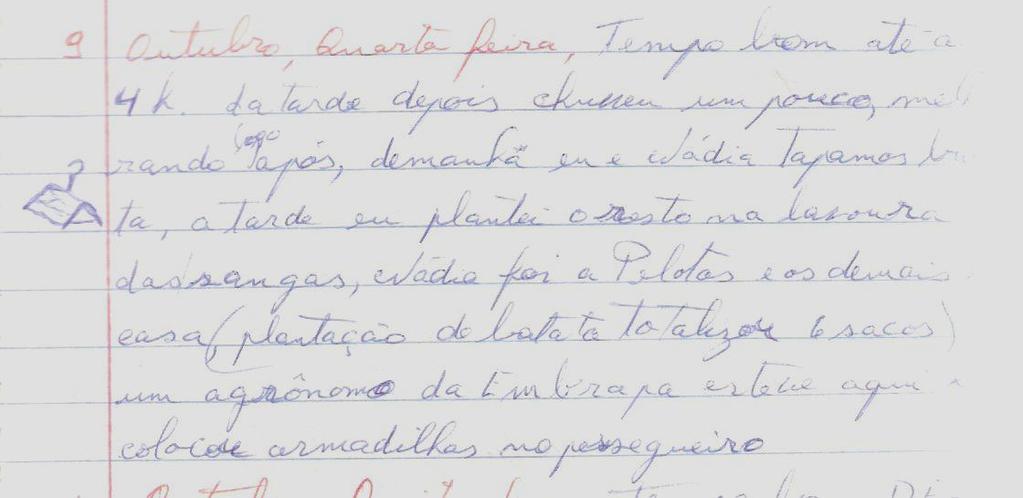 9 Outubro, Quarta feira, Tempo bom até a
4 h. da tarde depois chuveu um pouco, mel
rando logo após, demanhã eu e Nádia Tapamos
ta, a tarde eu plantei o resto na lavoura
das sangas, Nádia foi a Pelotas e os demais
casa, (plantação de batata totalizou 6 sacos)
um agrônomo da Embrapa esteve aqui
colocou armadilhas no pessegueiro
Outubro